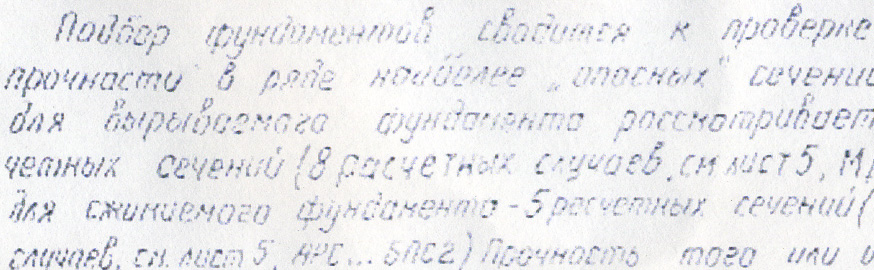 Подбор фундаментов сводится к проверке
прочности в ряде наиболее „опасных" сечений
для вырываемого фундамента рассматривает
четных сечений (8 расчетных случаев, см лист 5, М
Для сжимаемого фундамента - 5 расчетных сечений (
случаев, см. лист 5, Прочность того или и